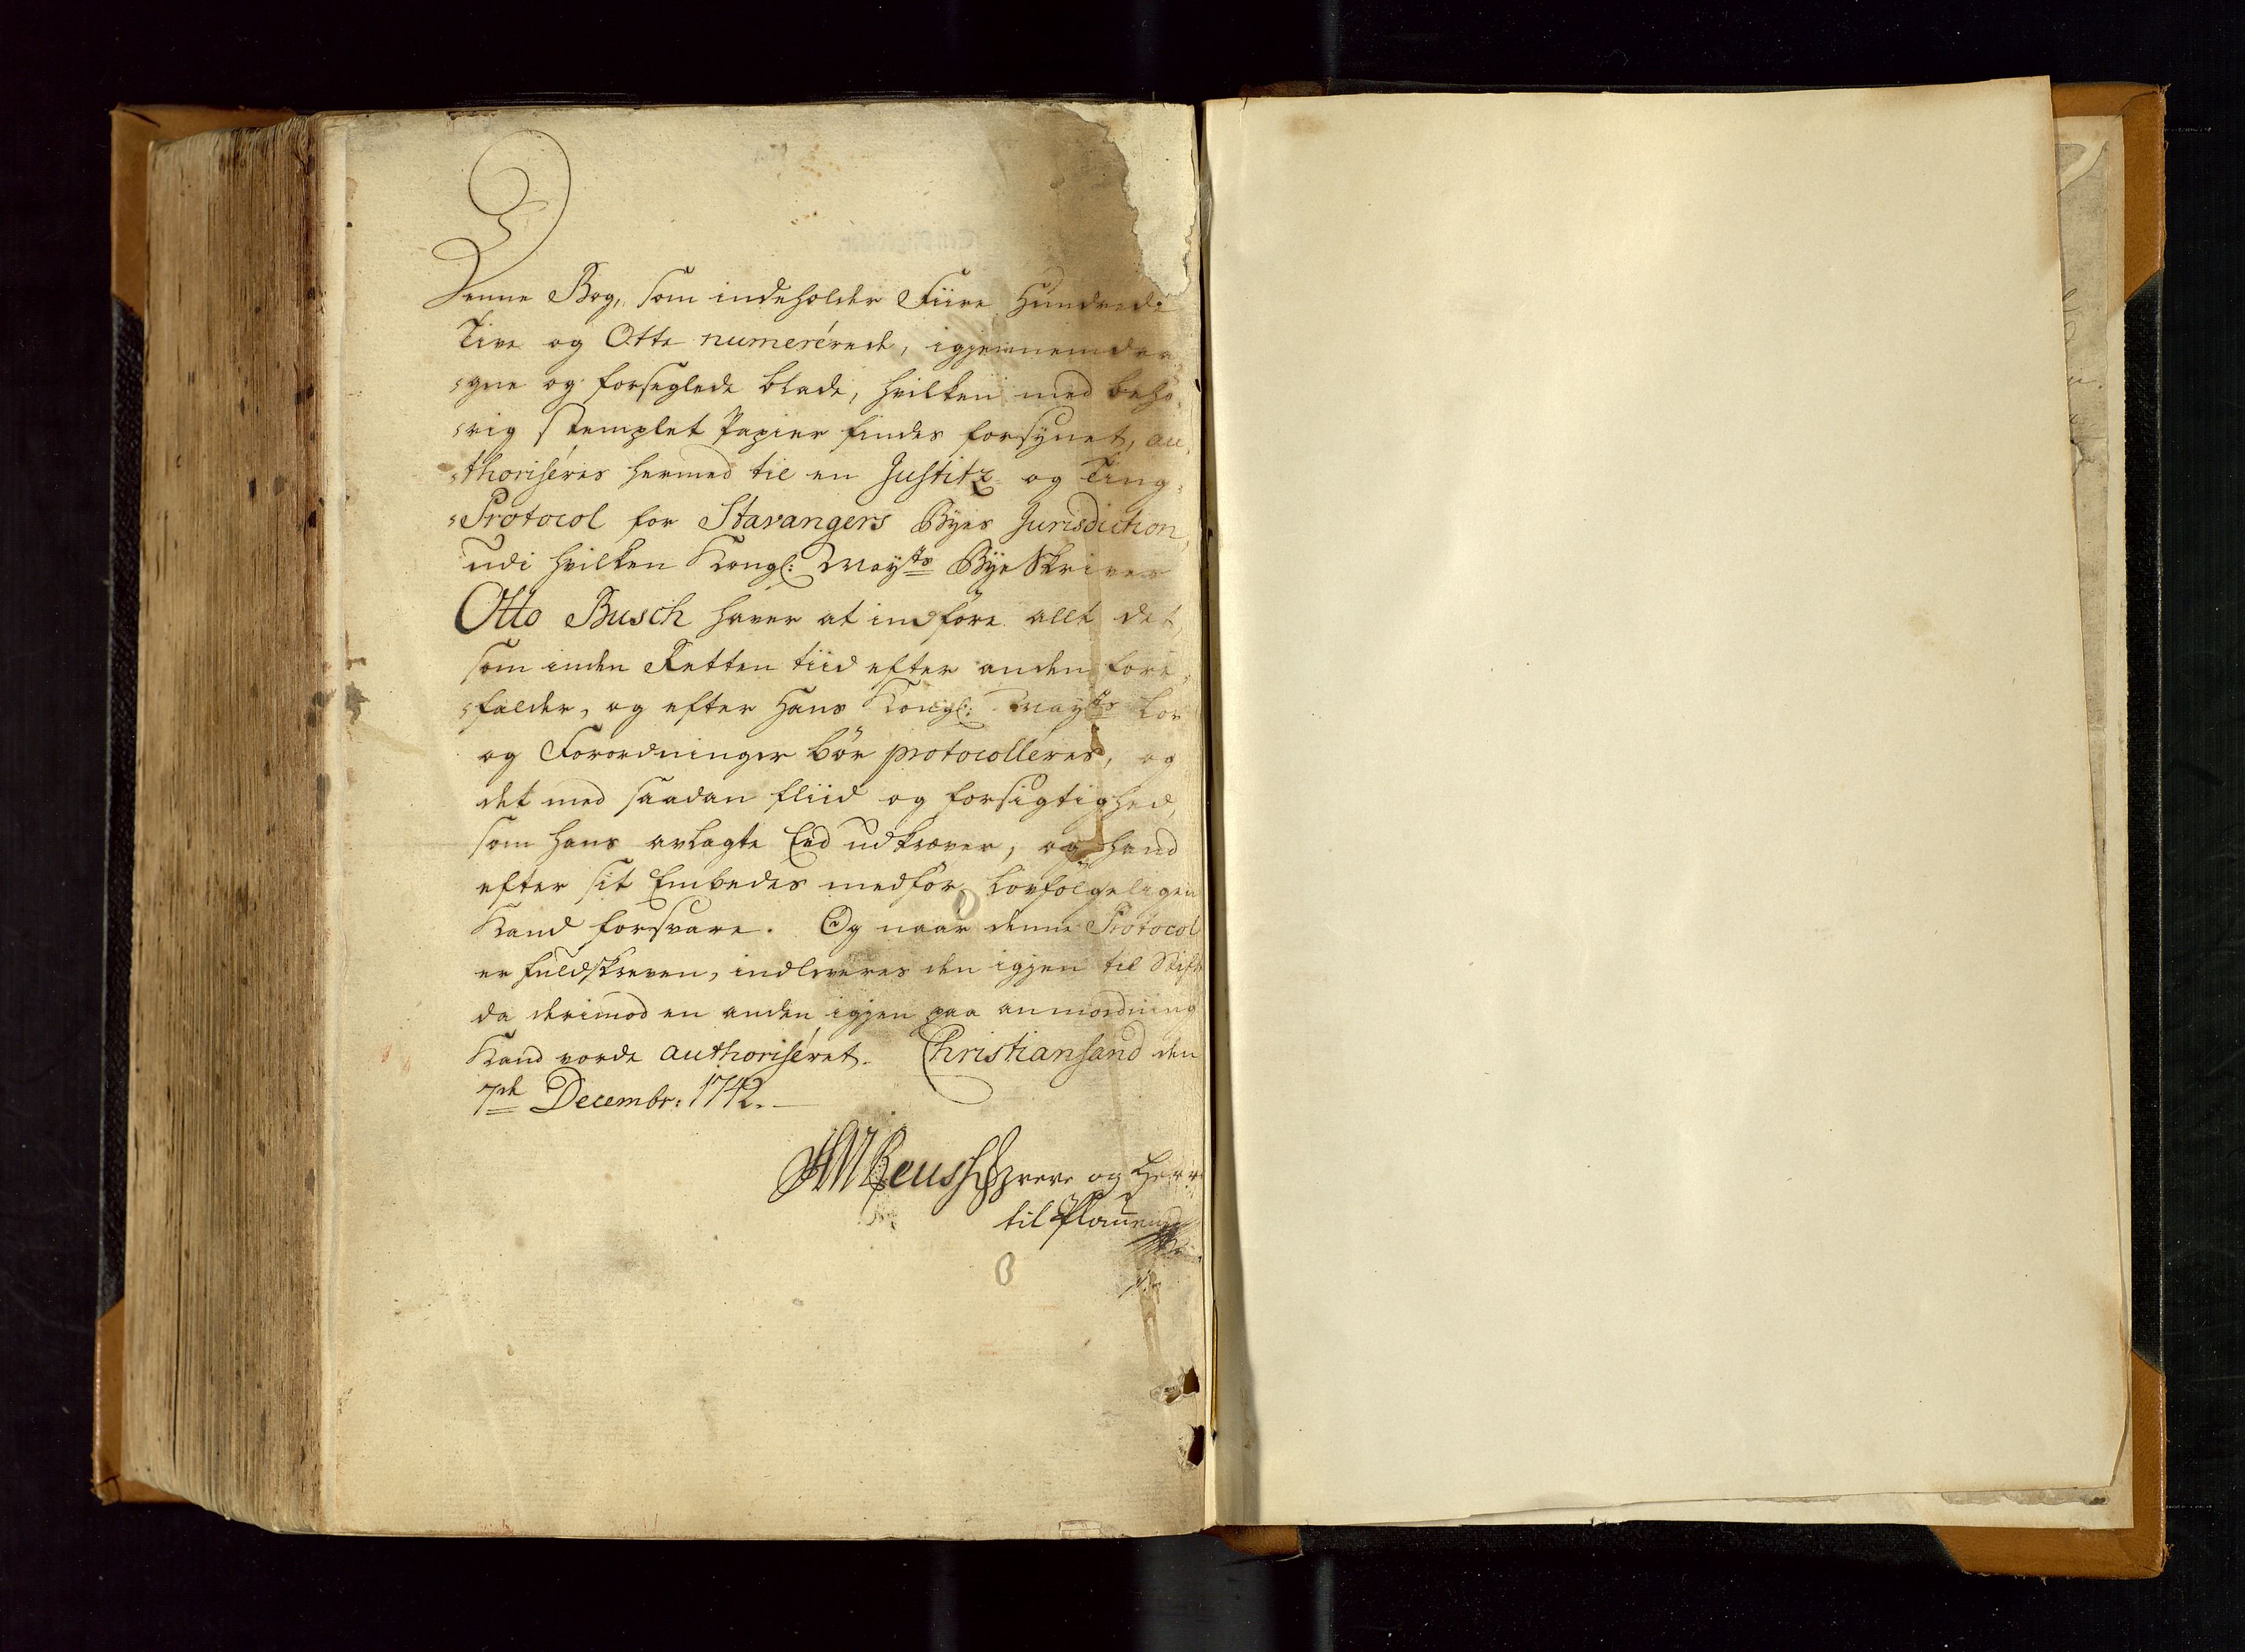 Denne Bog, som indeholder Fiire Hundrede
Tive og Otte numerérede, igjennemdra
-gne og forseglede blade, hvilken med behö
-rig stemplet Papier findes forsÿnet, au
-thoriséres hermed til en Justitz og Ting-
-Protocol for Stavangers Bÿes Jurisdiction,
udi hvilken Kongl: Mayts Bÿe Skriver
Otto Busch haver at indföre allt det,
som inden Retten tiid efter anden fore
-falder, og efter Hans Kongl: Mayts Lov
og Forordninger bör protocolleres, og
det med saadan fliid og forsigtighed,
som hans avlagte Eed udkræver, og hand
efter sit Embedes medför lovfölgeligen
Kand forsvare. Og naar denne Protocol
er fuldskreven, indleveres den igjen til Stift
da derimod en anden igjen paa anmodning
Kand vorde authoriséret. Christiansand den
7de Decembr: 1742.
HMReuss Greve og Herr
til Plauen